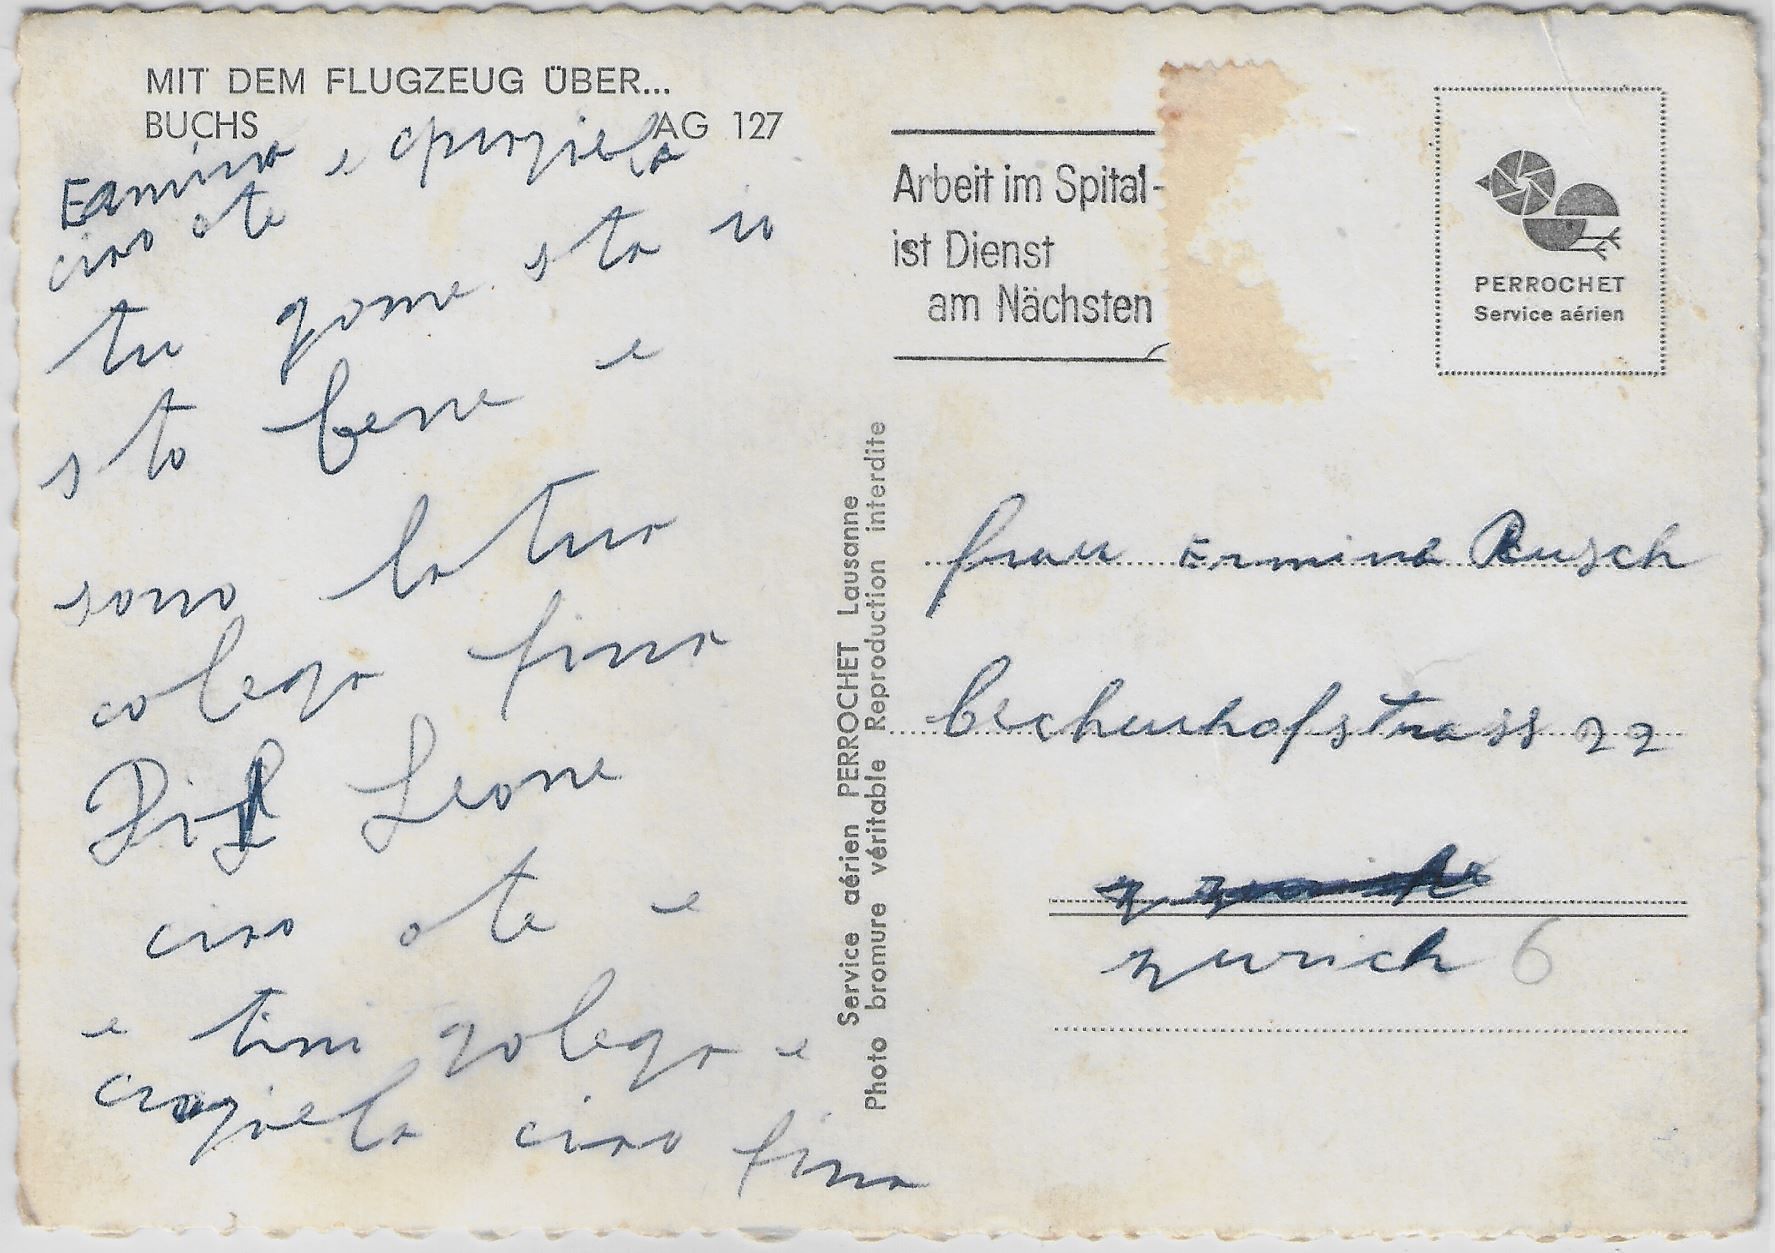 MIT DEM FLUGZEUG ÜBER...
BUCHS AG 127
Ermina e
ciao a te
tu gome sta io
sto bene e
sono la tua
colega fina
Di Leone
ciao a te e
e tini golega e
graziela ciao fina
Arbeit im Spital-
ist Dienst
am Nächsten
PERROCHET
Service aérien
Service aérien PERROCHET Lausanne
Photo bromure véritable Reproduction interdite
frau Ermina Rusch
bechenhofstrass 22
zurich 6